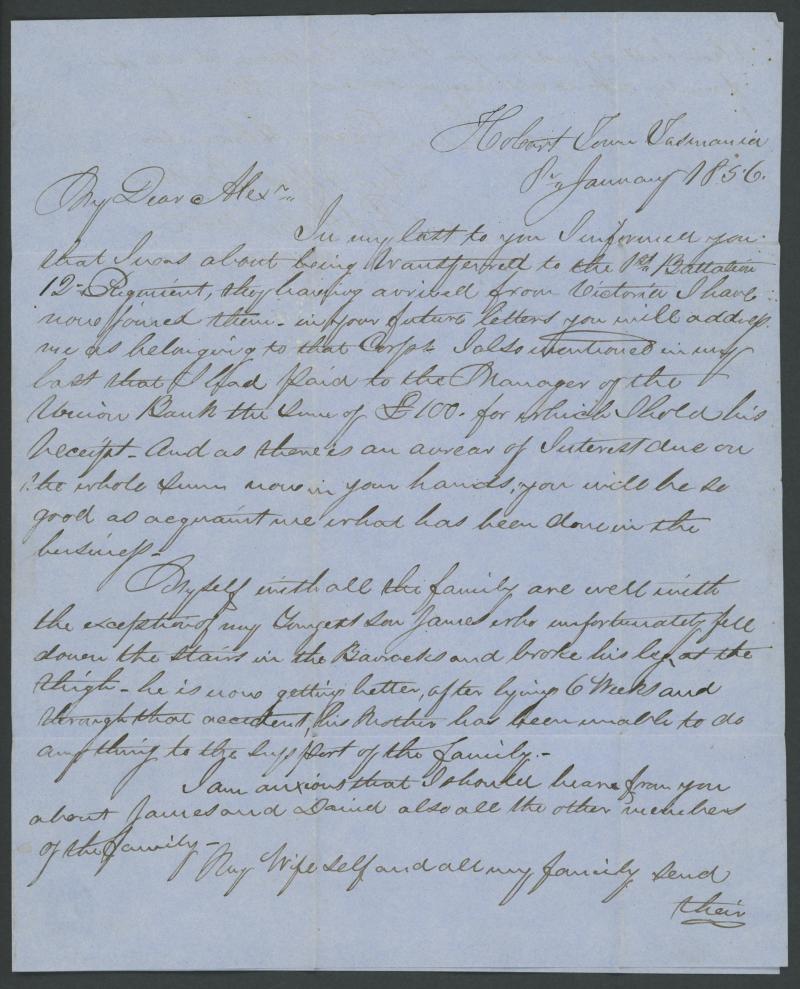 Hobart Town Tasmania
January 1856.
My Dear Alexr
In my last to you I informed you
that I was about being transferred to the 1st Battalion
12th Regiment, they having arrived from Victoria I have
now joined them - in your future letters you will address
me as belonging to that Corps. I also mentioned in my
last that I had paid to the Manager of the
Union Bank the sum of £100. for which I hold his
receipt - And as there is an arrear of Interest due on
the whole sum now in your hands, you will be so
good as acquaint me what has been done in the
business -
Myself with all the family are well with
the exception of my Youngest son James who unfortunately fell
down the stairs in the Barracks and broke his leg at the
thigh - he is now getting better, after lying 6 Weeks and
through that accident, his Mother has been unable to do
any thing to the support of the family. -
I am anxious that I should heare from you
about James and David also all the other members
of the family -
My Wife self and all my family send
their